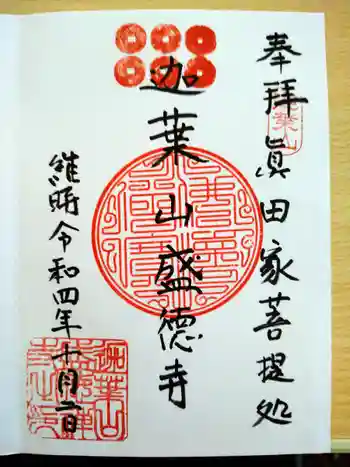 奉拝眞田家菩提処
迦葉山盛徳寺
維時令和四年十月二日
迦葉山